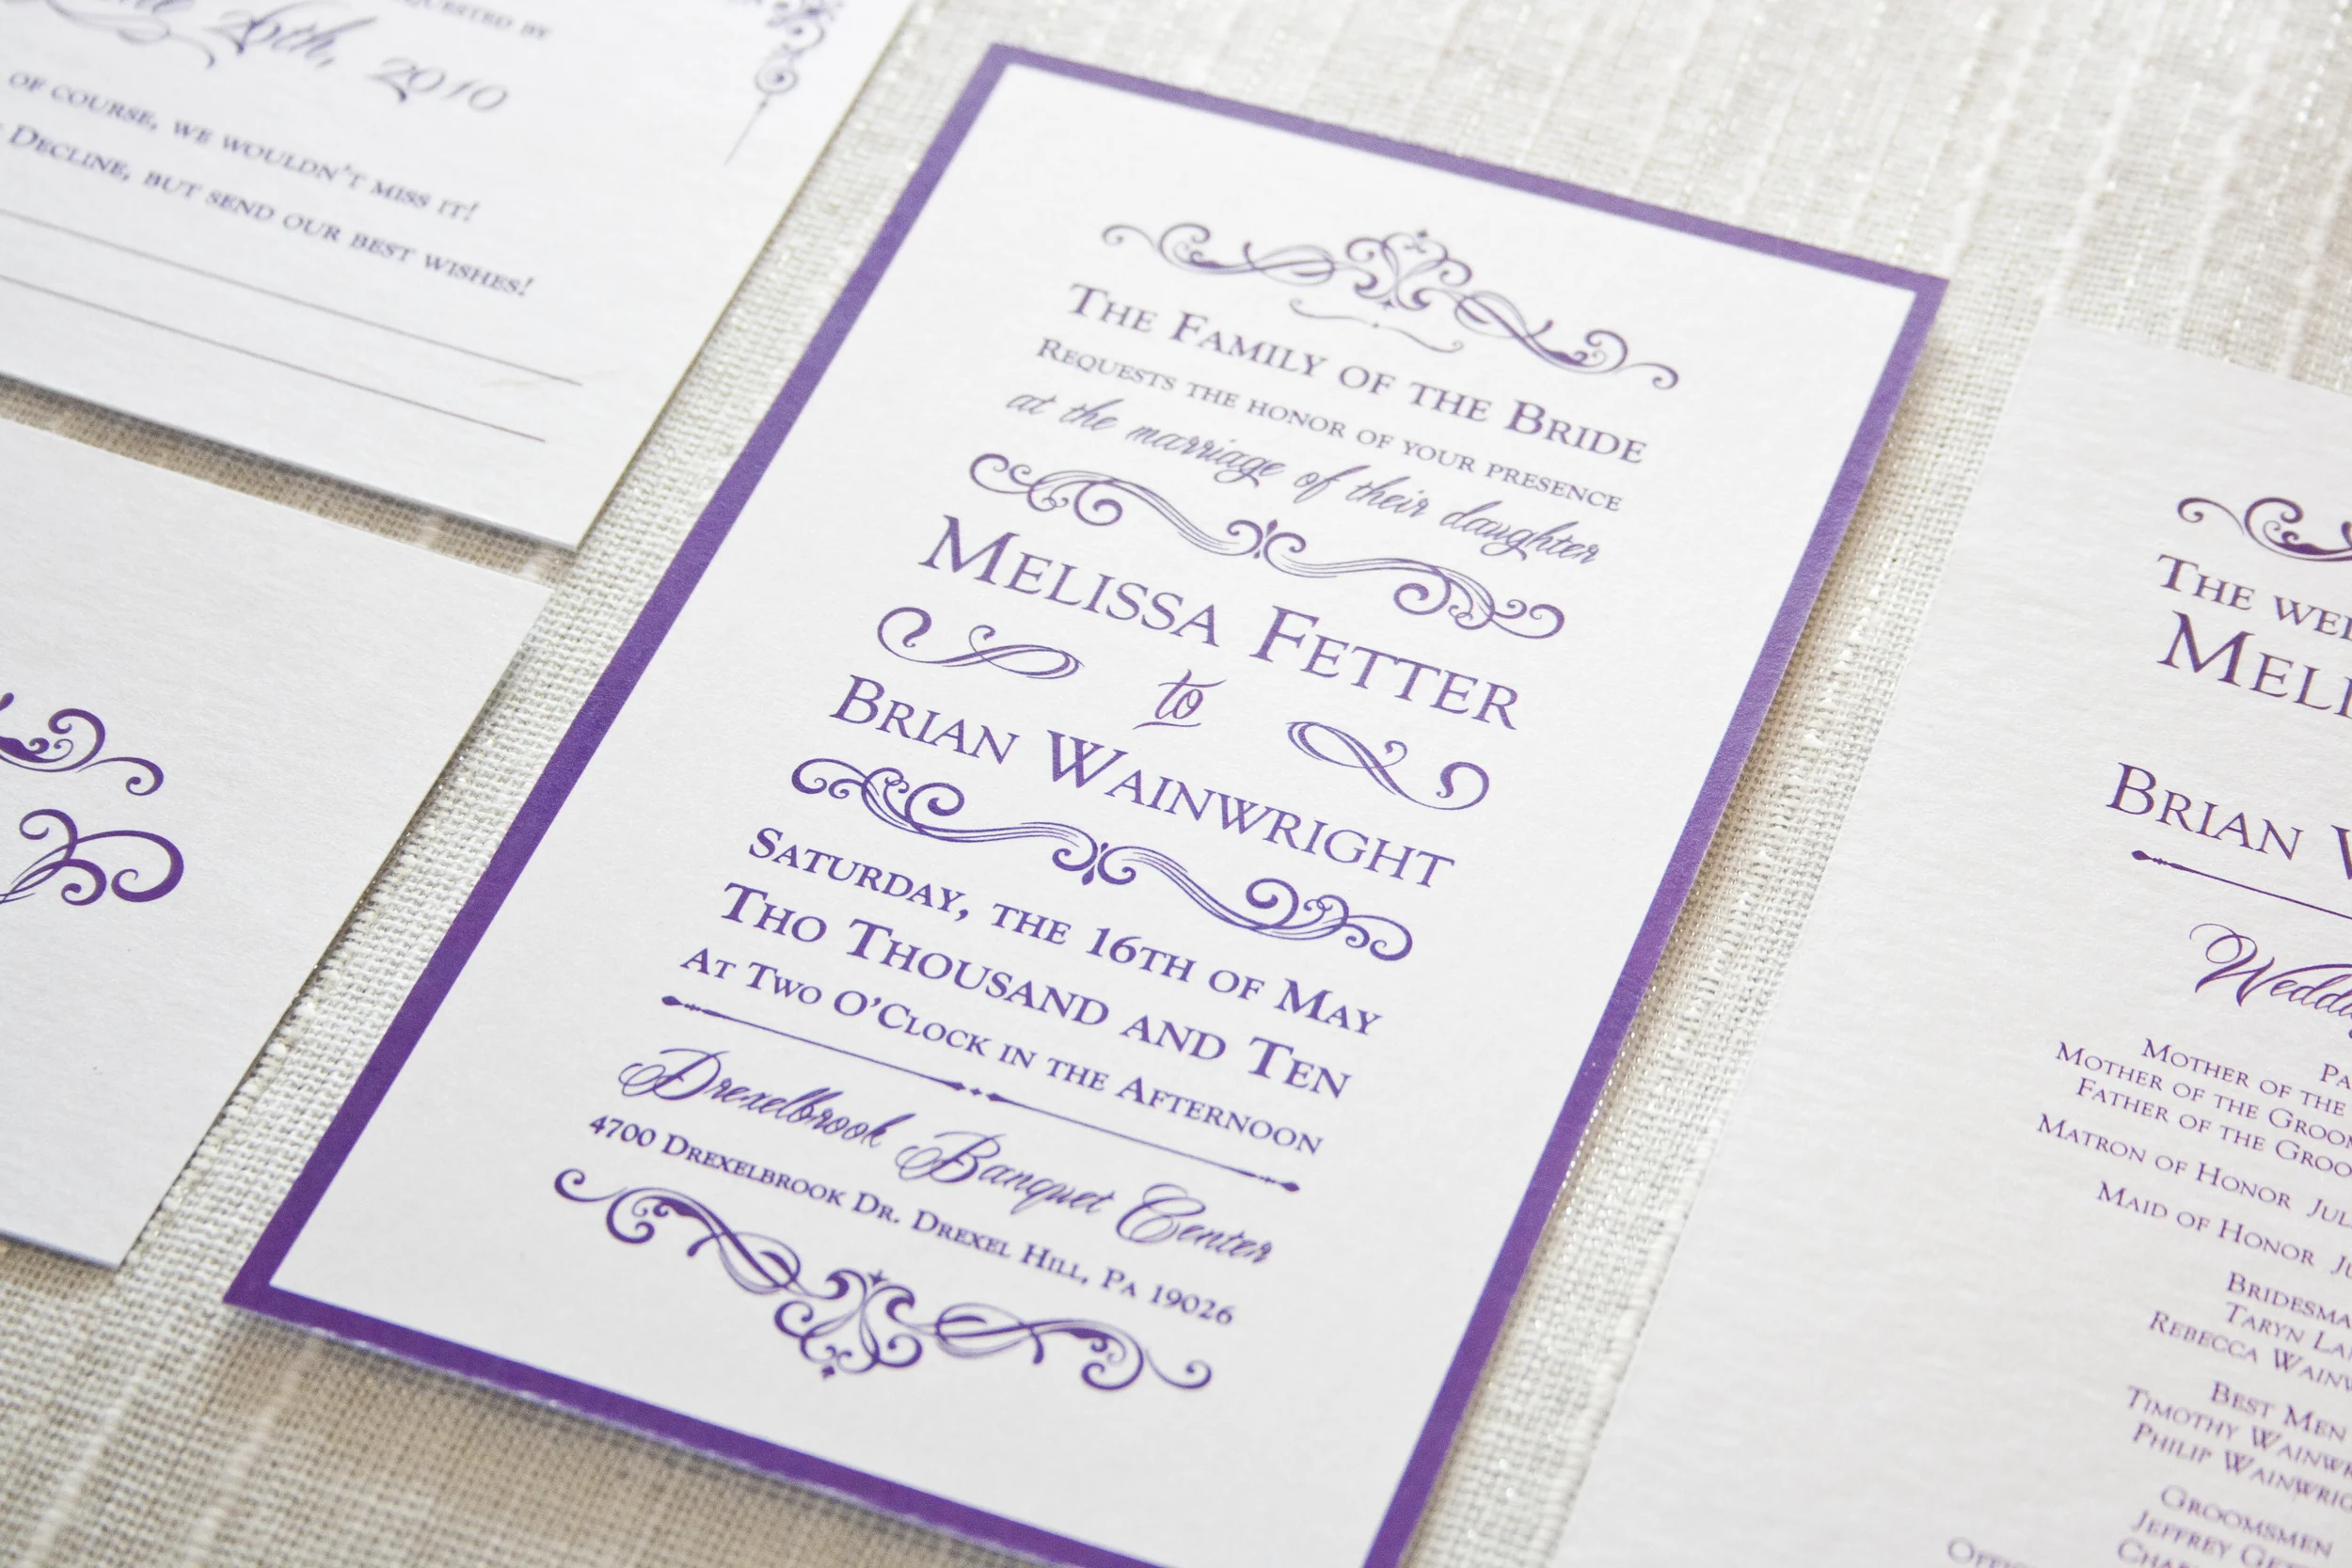 REQUESTED BY
26th, 2010
OF COURSE, WE WOULDN'T MISS IT!
DECLINE, BUT SEND OUR BEST WISHES!
THE FAMILY OF THE BRIDE
REQUESTS THE HONOR OF YOUR PRESENCE
at the marriage of their daughter
MELISSA FETTER
to
BRIAN WAINWRIGHT
SATURDAY, THE 16TH OF MAY
THO THOUSAND AND TEN
AT TWO O'CLOCK IN THE AFTERNOON
Drexelbrook Banquet Center
4700 DREXELBROOK DR. DREXEL HILL, PA 19026
THE
BRIAN
MOTHER OF THE
MOTHER OF THE
FATHER OF THE
MATRON OF HONOR
MAID OF HONOR
TARYN
REBECCA
BEST MEN
TIMOTHY
PHILIP
GROOMSMEN
JEFFREY